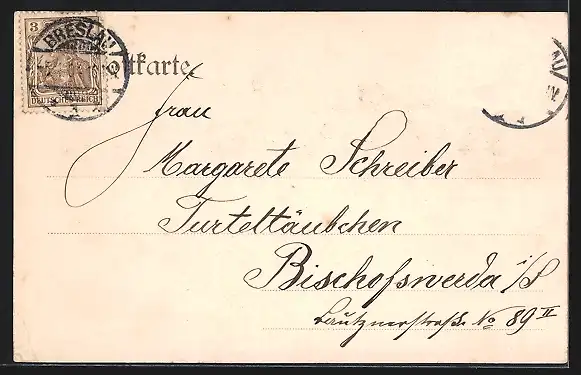 3
BRESLAU
DEUTSCHES REICH
Postkarte
AU
Frau
Margarete Schreiber
Turteltäubchen
Bischofswerda i/S
Bautznerstraße No 89 II